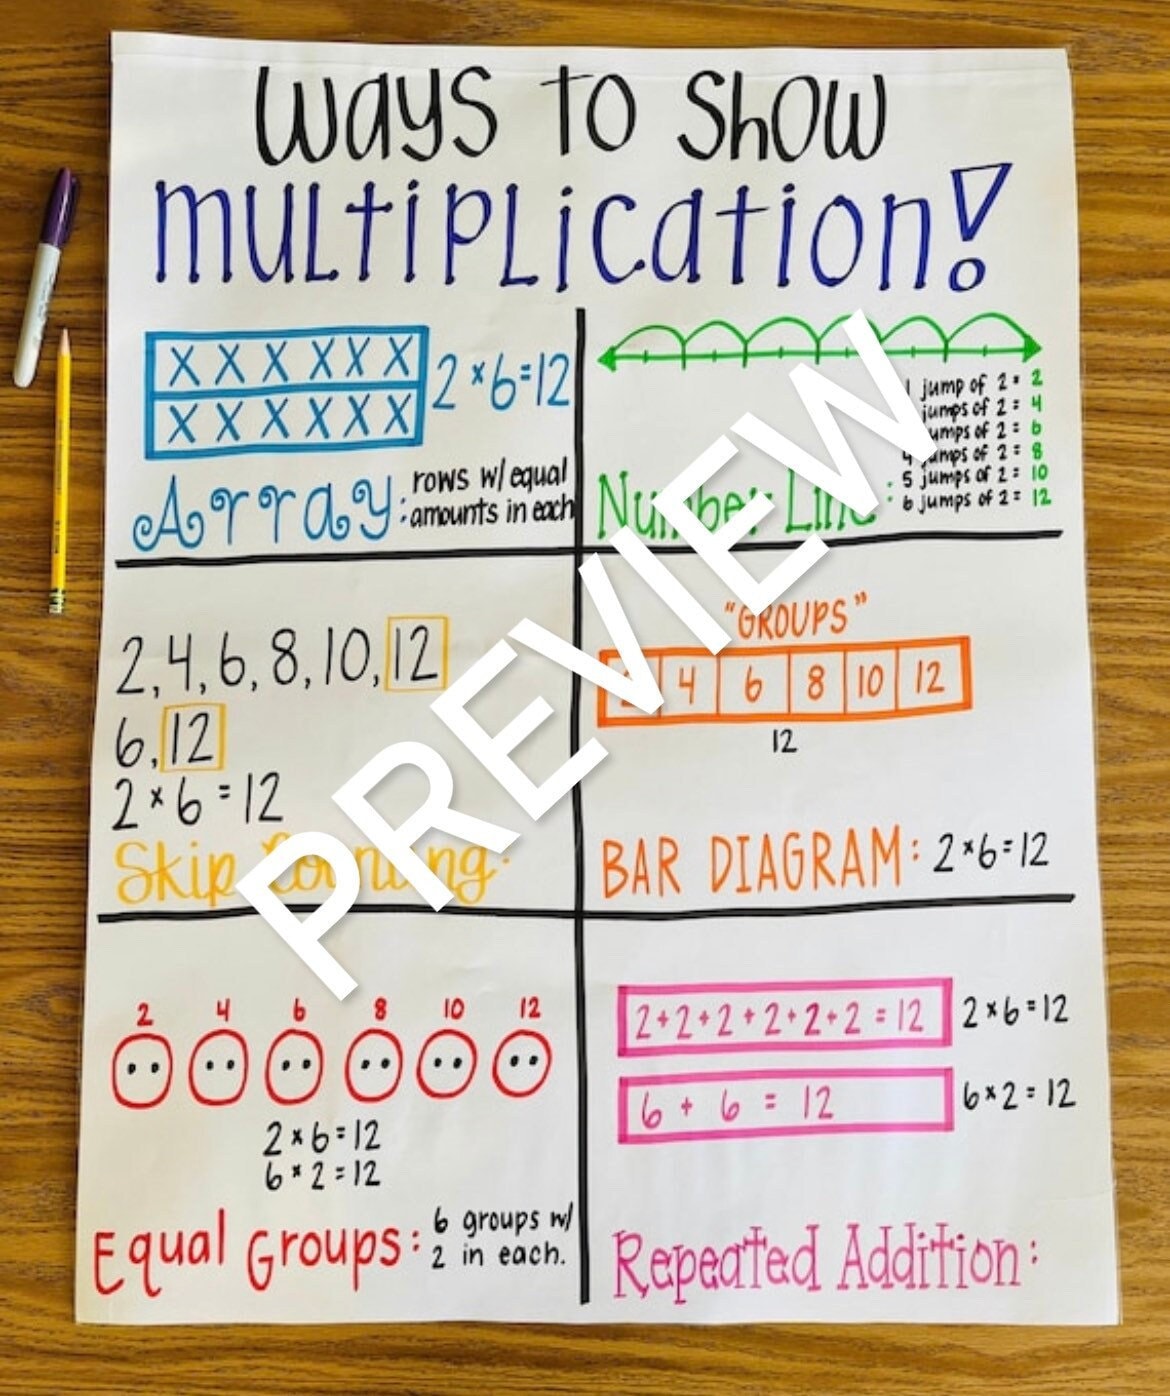 Ways to Show
Multiplication!
X X X X X X
X X X X X X
2×6=12
Array: rows w/equal
amounts in each
1 jump of 2 = 2
jumps of 2 = 4
jumps of 2 = 6
4 jumps of 2 = 8
5 jumps of 2 = 10
6 jumps of 2 = 12
Number Line:
2, 4, 6, 8, 10, 12
6, 12
2×6=12
Skip Counting:
"GROUPS"
4 6 8 10 12
12
BAR DIAGRAM: 2×6=12
2 4 6 8 10 12
2×6=12
6×2=12
Equal Groups: 6 groups w/
2 in each.
2+2+2+2+2+2=12 2×6=12
6 + 6 = 12 6×2=12
Repeated Addition:
PREVIEW